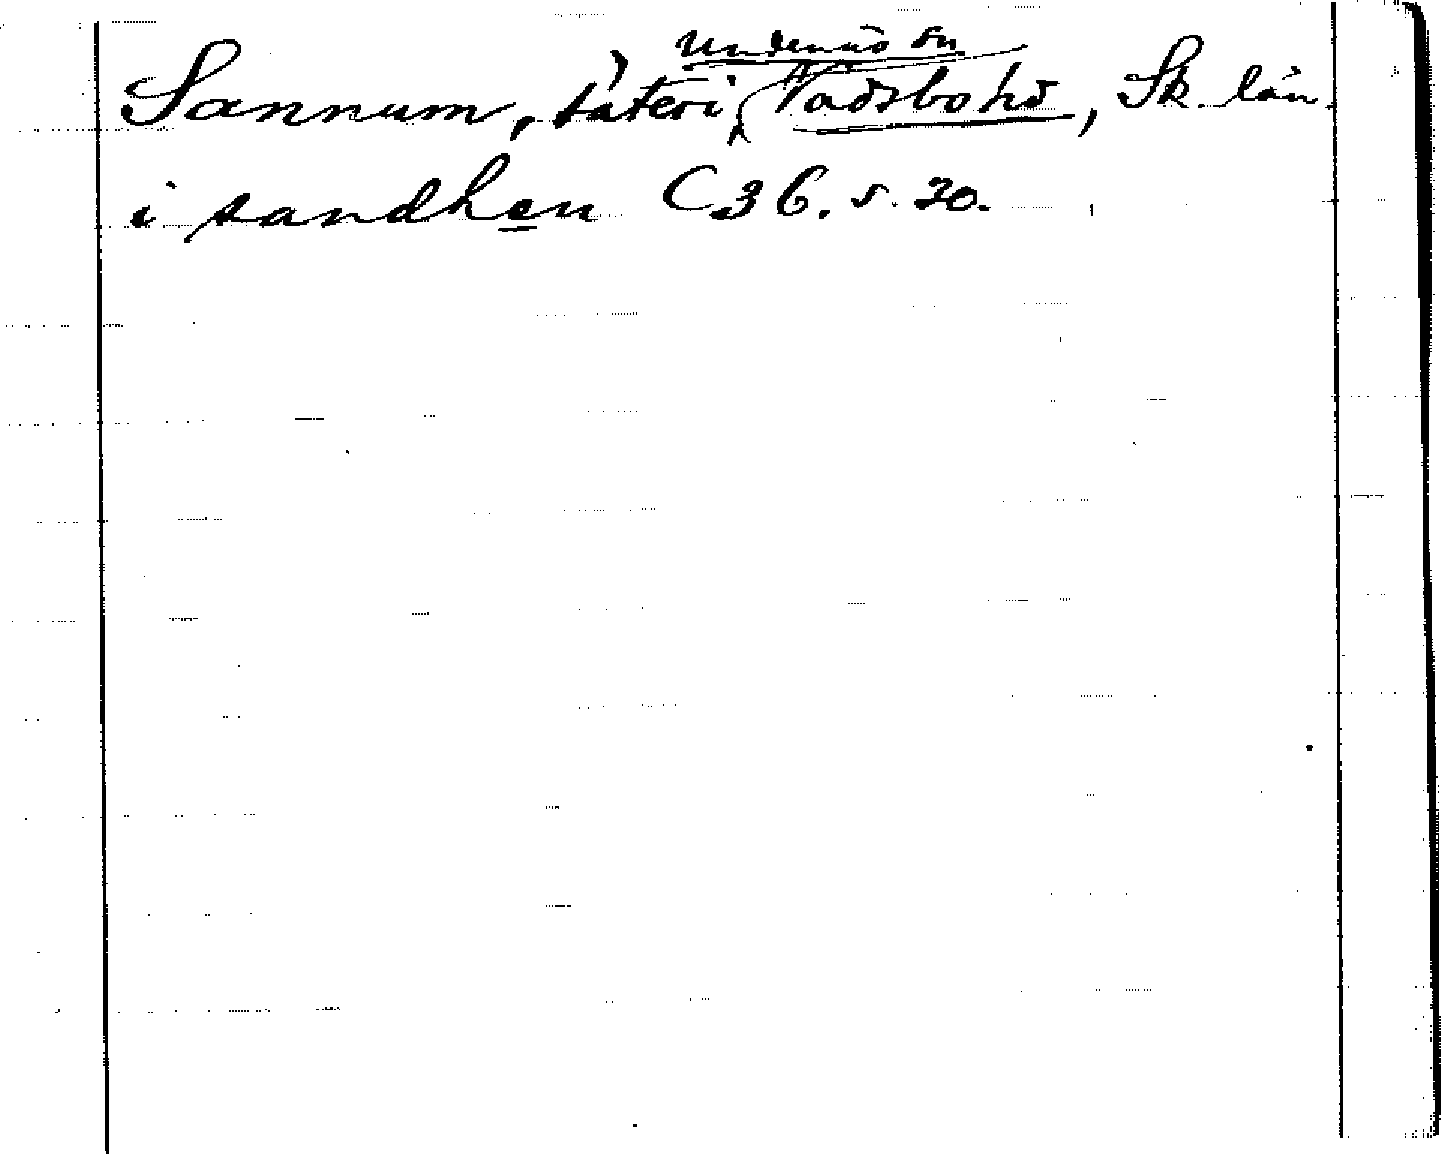 Undenäs sn
Sannum, säteri, Vadsbo hd, Sk. län.
i sandhen C36. s. 20.